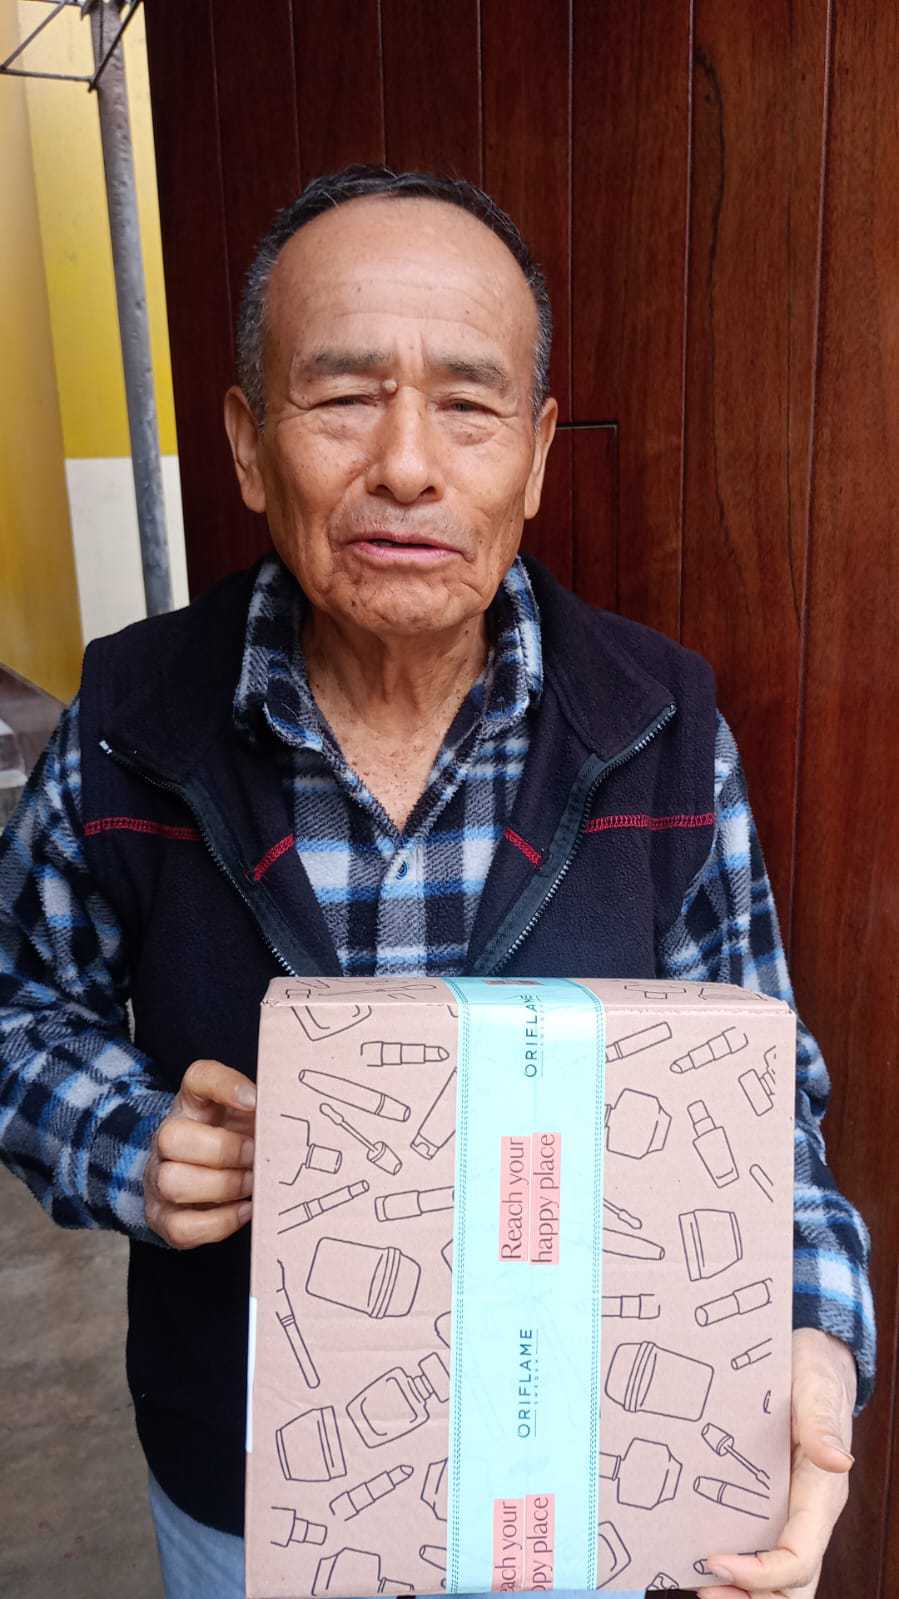 ORIFLAME
SWEDEN
Reach your
happy place
ORIFLAME
SWEDEN
each your
ppy place